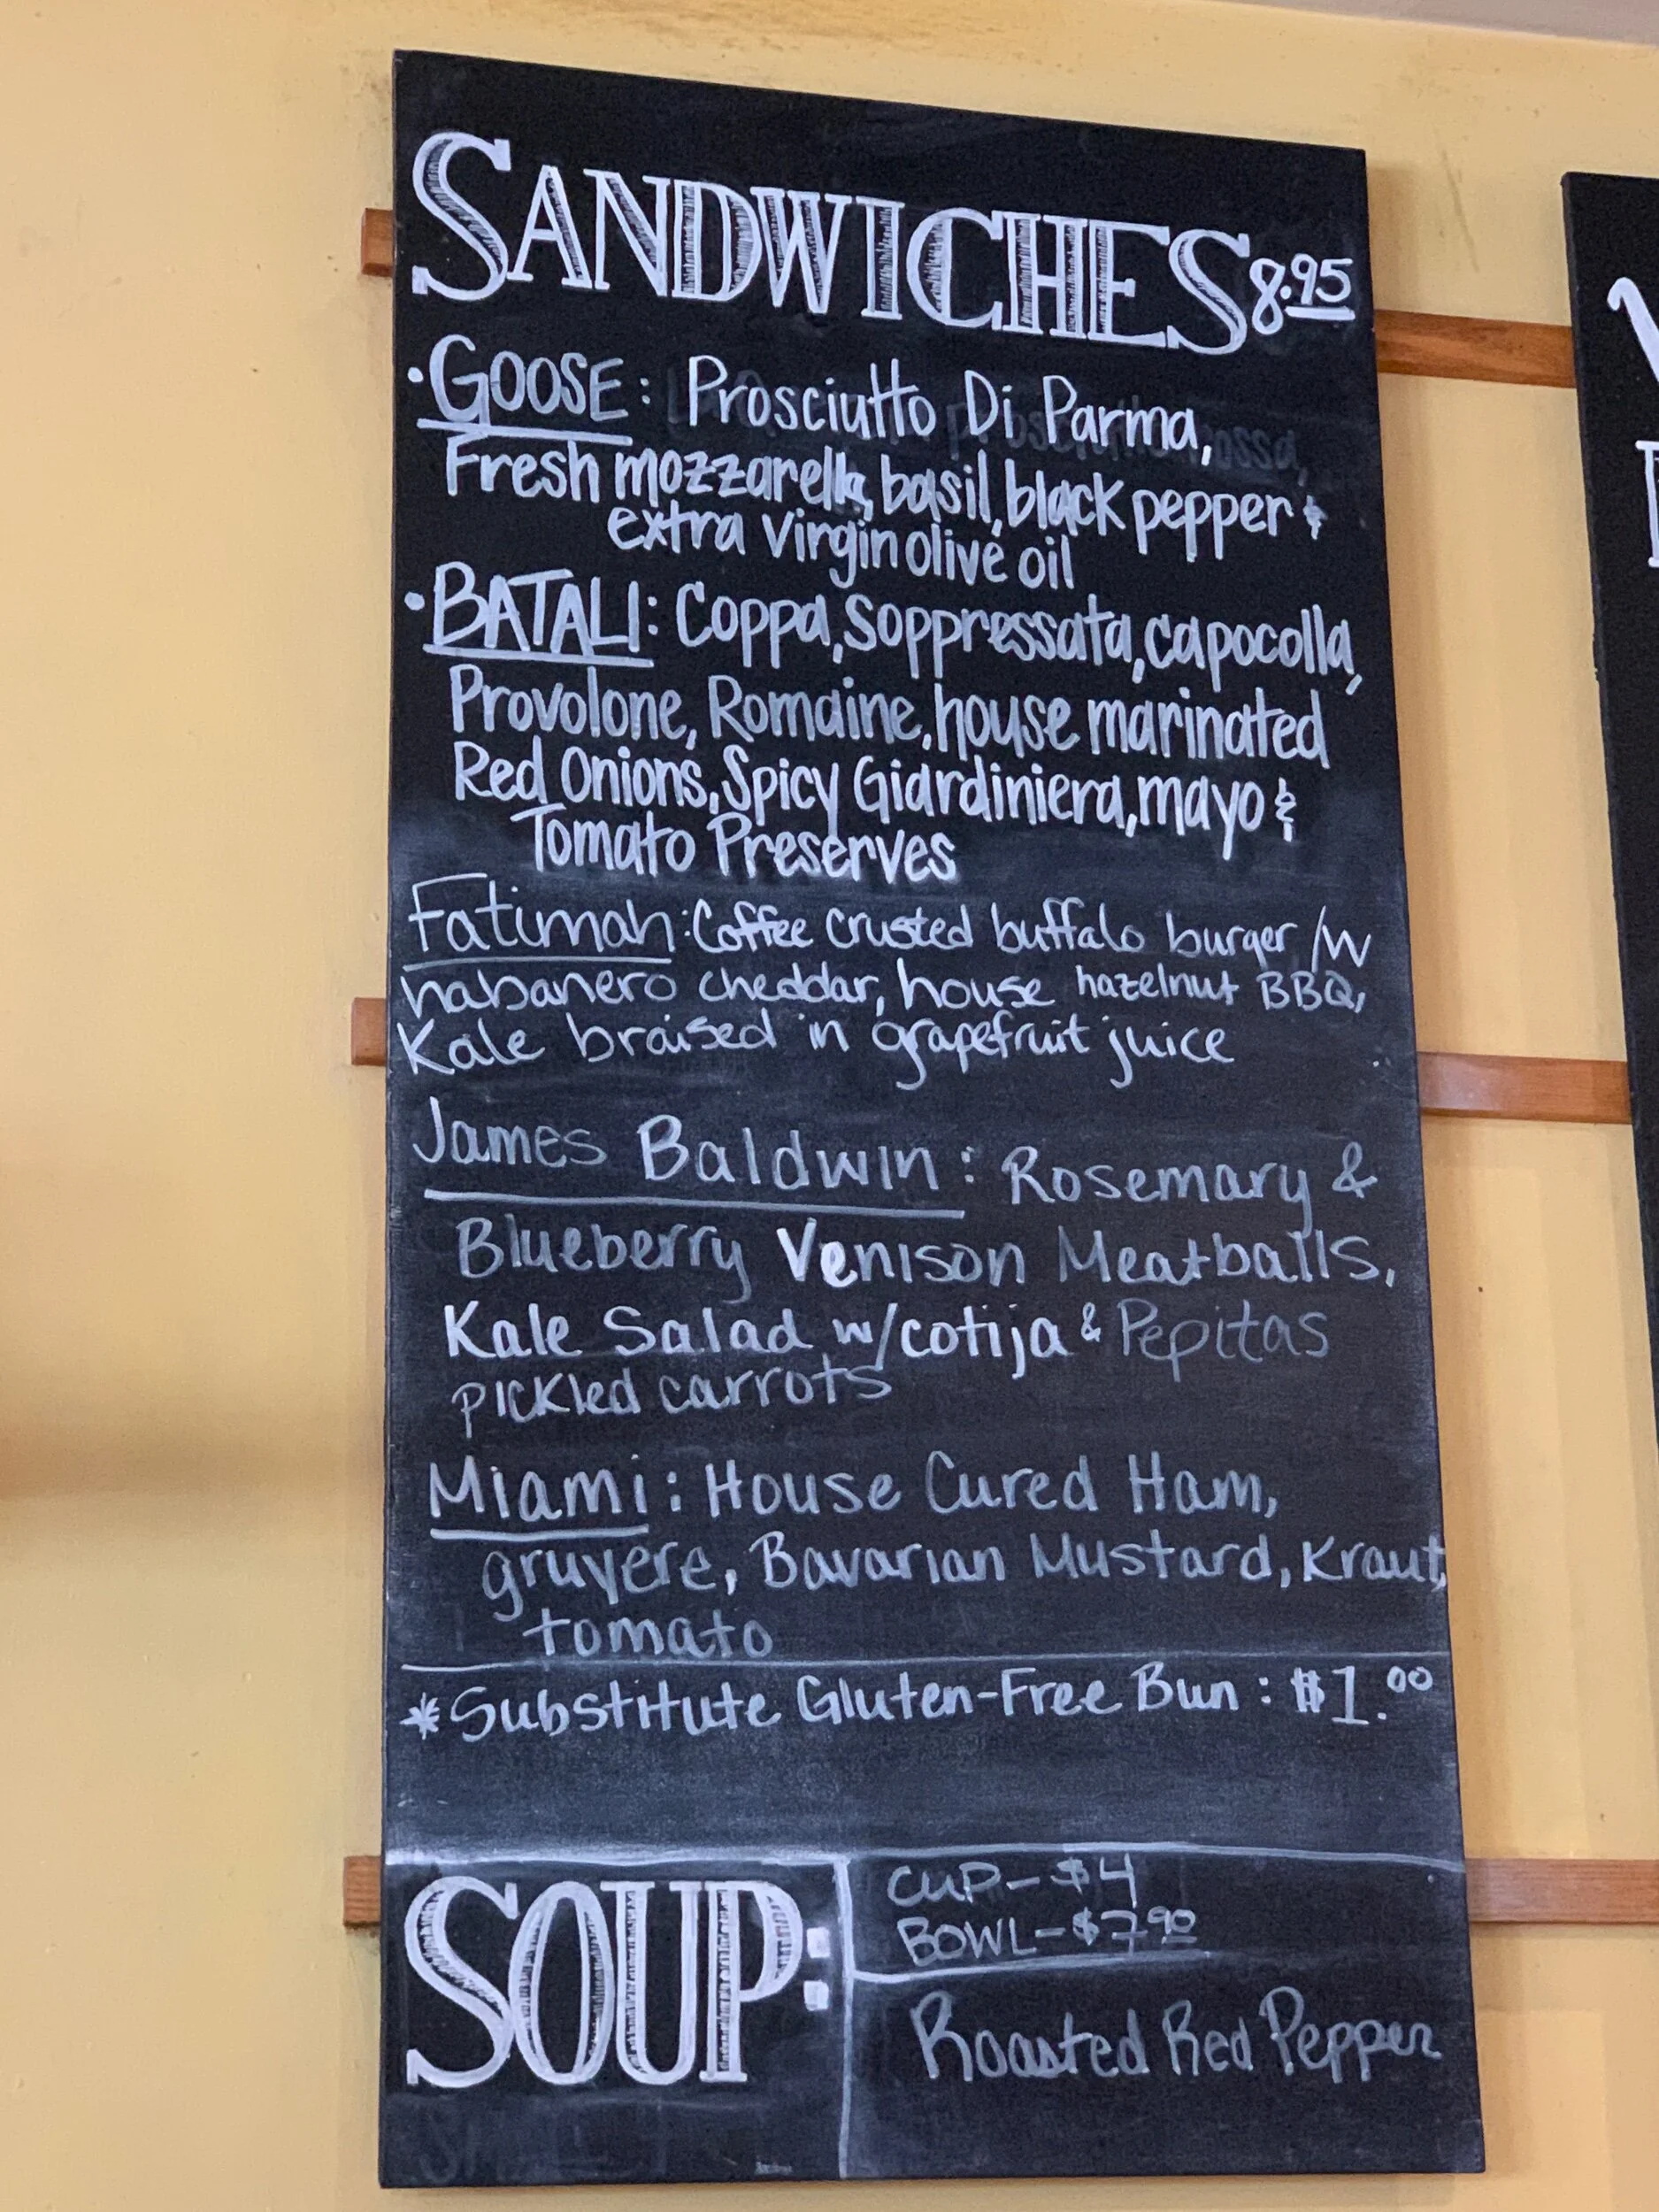 SANDWICHES 8.95
• GOOSE: Prosciutto Di Parma,
Fresh mozzarella, basil, black pepper &
extra virgin olive oil
• BATALI: Coppa, Soppressata, capocolla,
Provolone, Romaine, house marinated
Red Onions, Spicy Giardiniera, mayo &
Tomato Preserves
Fatimah: Coffee crusted buffalo burger /w
habanero cheddar, house hazelnut BBQ,
Kale braised in grapefruit juice
James Baldwin: Rosemary &
Blueberry Venison Meatballs,
Kale Salad w/cotija & Pepitas
pickled carrots
Miami: House Cured Ham,
gruyere, Bavarian Mustard, Kraut,
tomato
*Substitute Gluten-Free Bun: $1.00
SOUP:
CUP - $4
BOWL - $7.90
Roasted Red Pepper